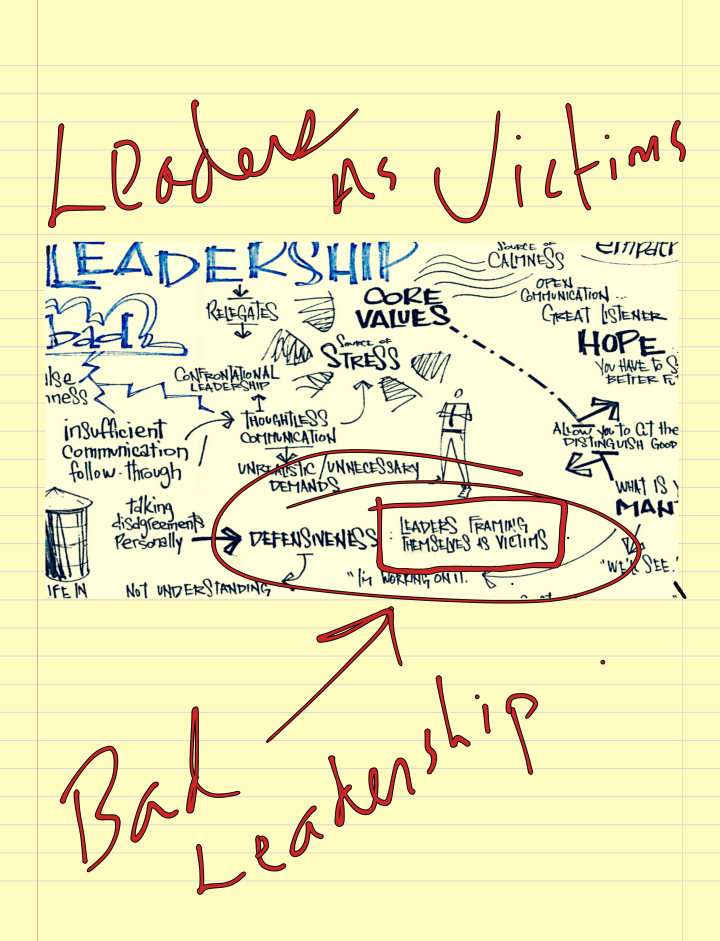 Leaders As Victims
LEADERSHIP
bad
RELEGATES
CONFRONTATIONAL
LEADERSHIP
THOUGHTLESS
COMMUNICATION
UNREALISTIC/UNNECESSARY
DEMANDS
insufficient
communication
follow-through
talking
disagreements
Personally
DEFENSIVENESS :
LEADERS FRAMING
THEMSELVES AS VICTIMS
NOT UNDERSTANDING
"I'M WORKING ON IT.
CORE
VALUES
SOURCE OF
STRESS
SOURCE OF
CALMNESS
OPEN
COMMUNICATION ...
GREAT LISTENER
HOPE
YOU HAVE TO S
BETTER FU
ALLOW YOU TO GET THE
DISTINGUISH GOOD
WHAT IS Y
MAN
"WE'LL SEE."
IFE IN
Bad
Leadership